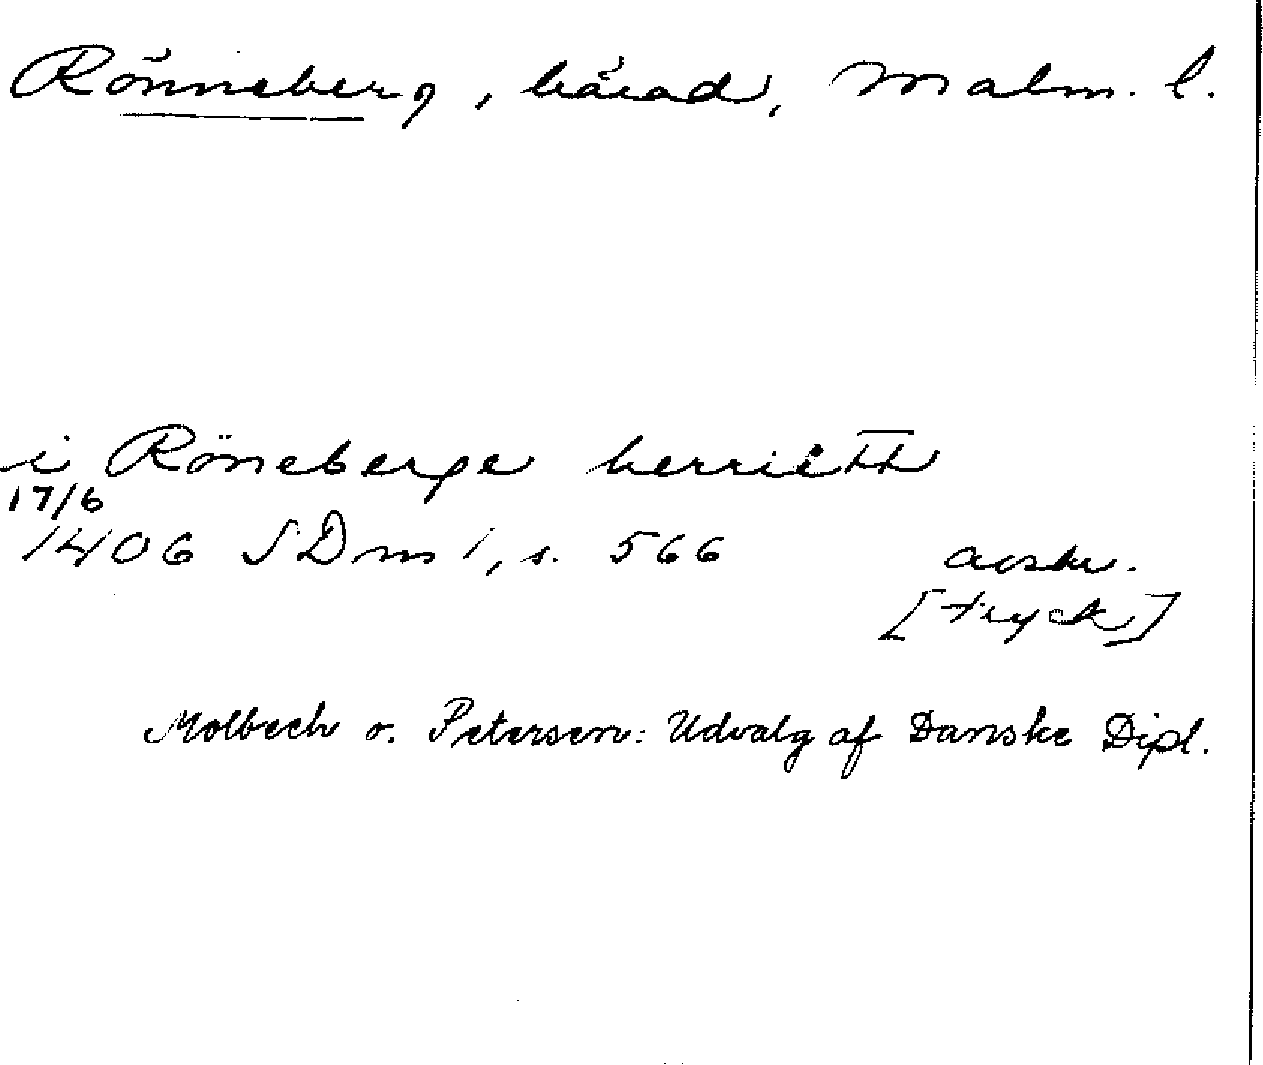 Rönneberg, härad, Malm. l.
i Röneberge herriett
17/6
1406 SDm 1, s. 566 avskr.
[tryck]
Molbech o. Petersen: Udvalg af Danske Dipl.